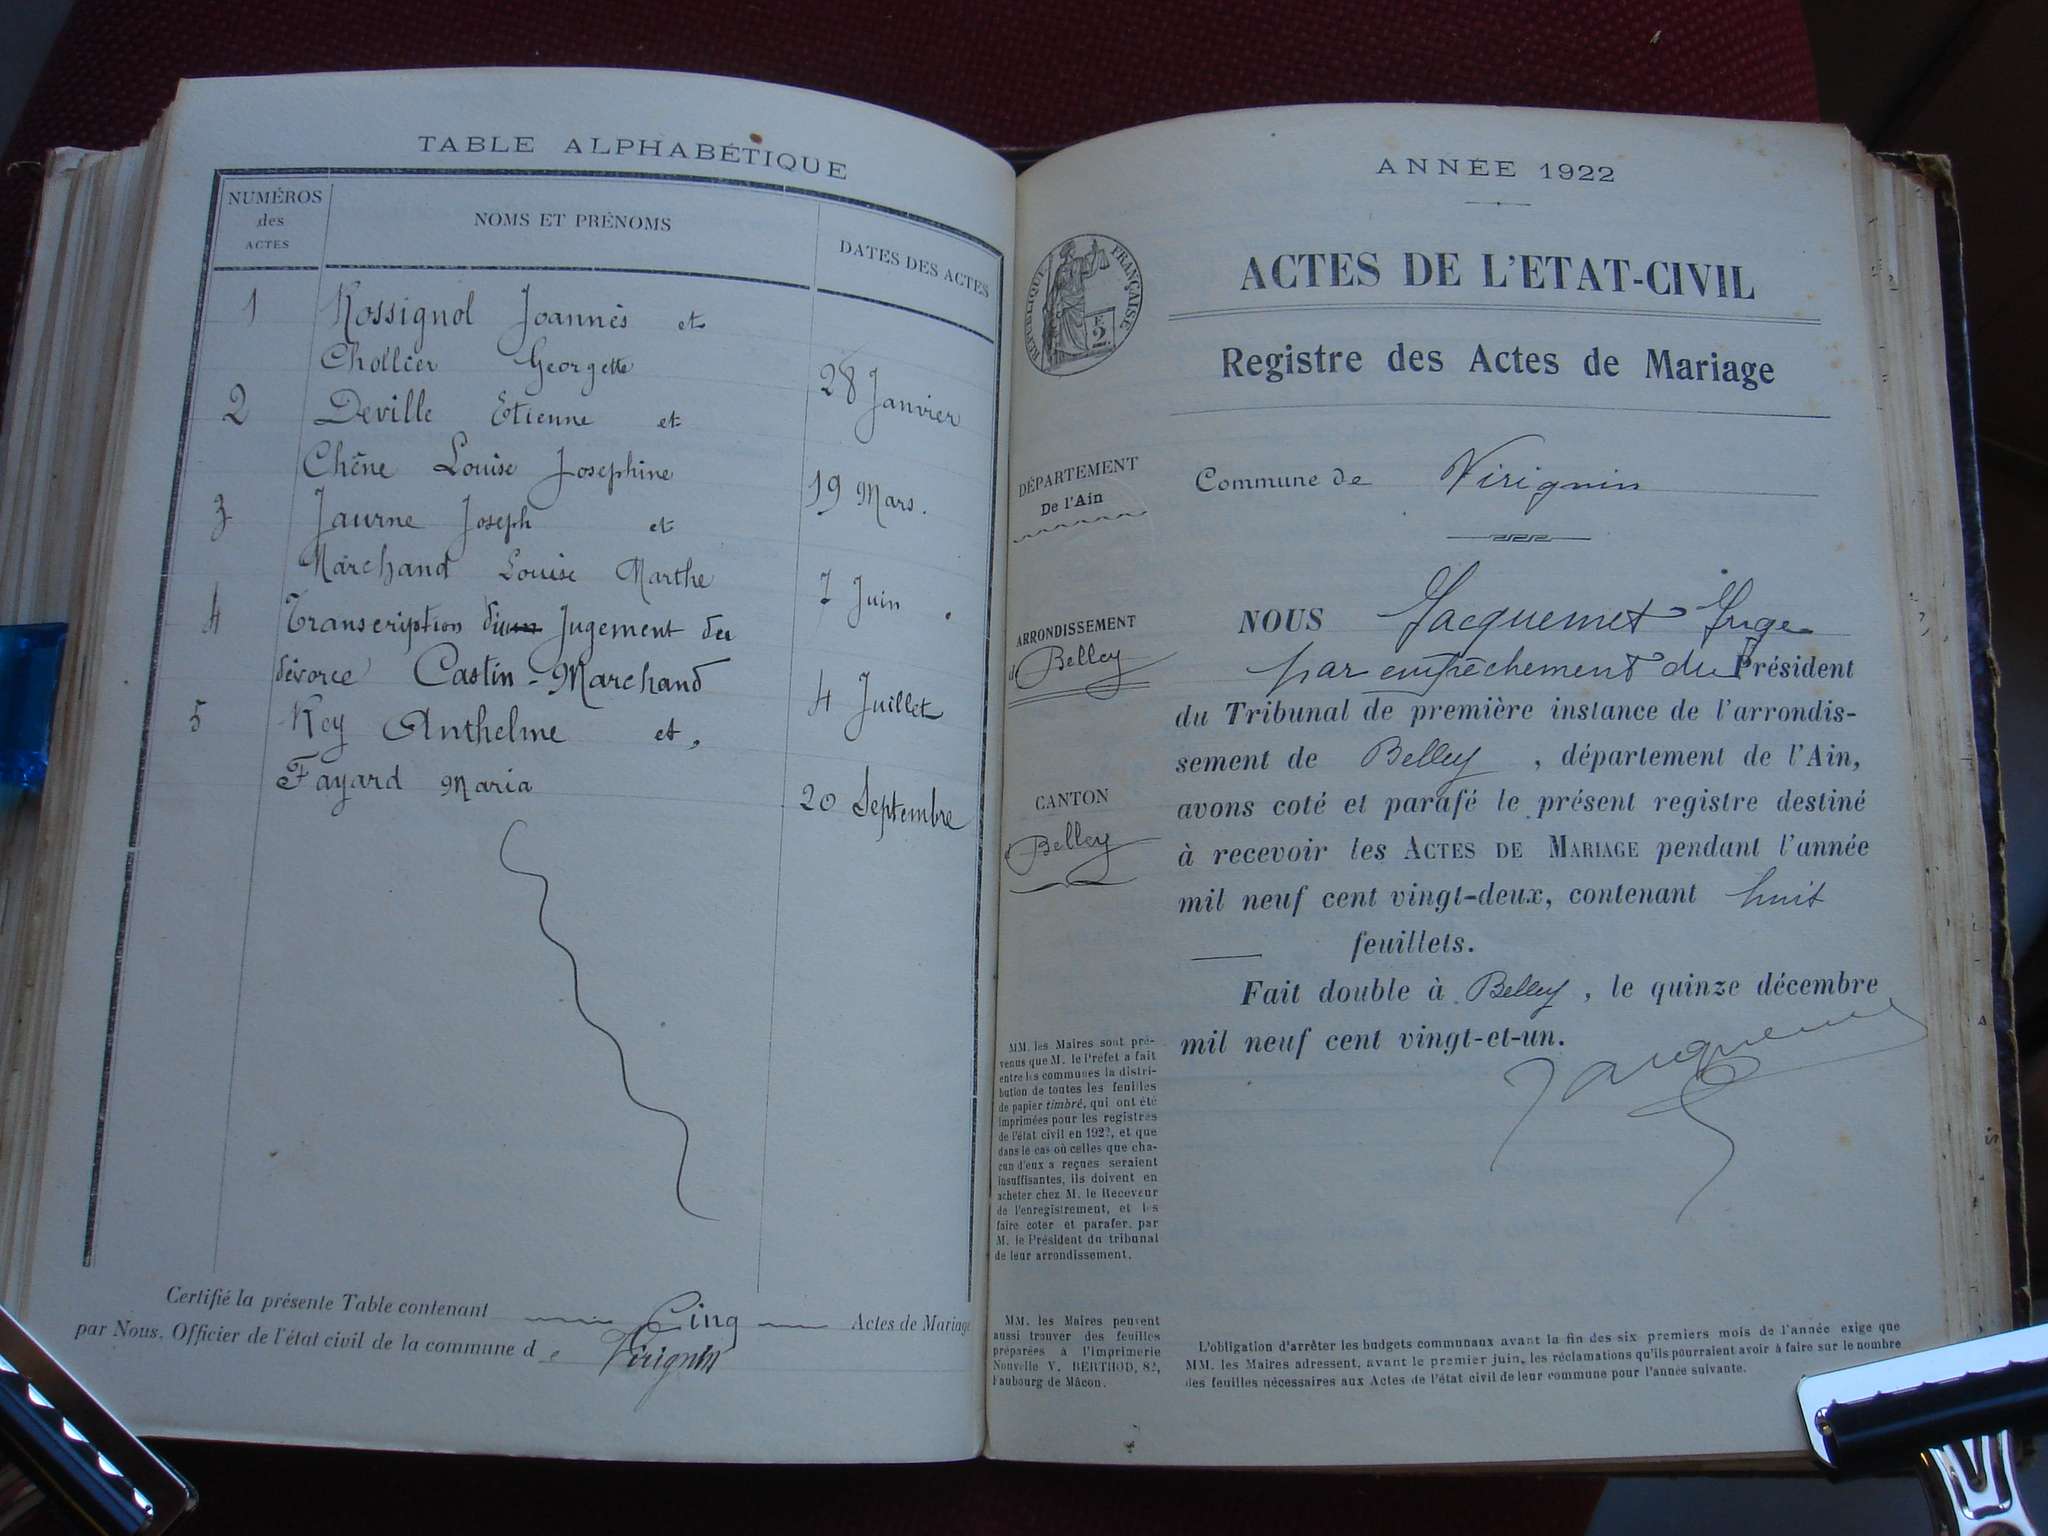 TABLE ALPHABÉTIQUE
NUMÉROS
des
ACTES
NOMS ET PRÉNOMS
DATES DES ACTES
1 Rossignol Joannès et
Chollier Georgette 28 Janvier
2 Deville Etienne et
Chêne Louise Josephine 19 Mars.
3 Jaurne Joseph et
Marchand Louise Marthe 7 Juin
4 Transcription Jugement du
divorce Castin-Marchand 4 Juillet
5 Rey Anthelme et
Fayard Maria 20 Septembre
Certifié la présente Table contenant Cinq Actes de Mariage
par Nous, Officier de l'état civil de la commune de Virignin
ANNÉE 1922
RÉPUBLIQUE FRANÇAISE
2
ACTES DE L'ETAT-CIVIL
Registre des Actes de Mariage
DÉPARTEMENT
De l'Ain
Commune de Virignin
ARRONDISSEMENT
de Belley
CANTON
de Belley
NOUS Jacquemet Juge
par empêchement du Président
du Tribunal de première instance de l'arrondis-
sement de Belley, département de l'Ain,
avons coté et parafé le présent registre destiné
à recevoir les ACTES DE MARIAGE pendant l'année
mil neuf cent vingt-deux, contenant huit
feuillets.
Fait double à Belley, le quinze décembre
mil neuf cent vingt-et-un.
Jacquemet
MM. les Maires sont pré-
venus que M. le Préfet a fait
entre les communes la distri-
bution de toutes les feuilles
de papier timbré, qui ont été
imprimées pour les registres
de l'état civil en 1922, et que
dans le cas où celles que cha-
cun d'eux a reçues seraient
insuffisantes, ils doivent en
acheter chez M. le Receveur
de l'enregistrement, et les
faire coter et parafer par
M. le Président du tribunal
de leur arrondissement.
MM. les Maires peuvent
aussi trouver des feuilles
préparées à l'Imprimerie
Nouvelle V. BERTHOD, 82,
Faubourg de Mâcon.
L'obligation d'arrêter les budgets communaux avant la fin des six premiers mois de l'année exige que
MM. les Maires adressent, avant le premier juin, les réclamations qu'ils pourraient avoir à faire sur le nombre
des feuilles nécessaires aux Actes de l'état civil de leur commune pour l'année suivante.